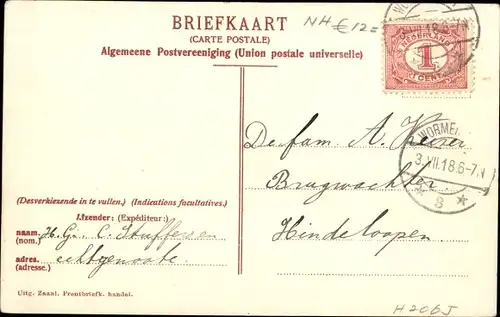 BRIEFKAART
(CARTE POSTALE)
Algemeene Postvereeniging (Union postale universelle)
NH € 12=
NEDERLAND
1
CENT
WORMER
3.VII.18.6-7N
8 *
De fam A.
Brugwachter
Hindeloopen
(Desverkiezende in te vullen.) (Indications facultatives.)
Afzender: (Expéditeur:)
naam. H. G. C. Stuffers en
(nom.)
adres. echtgenoote.
(adresse.)
Uitg. Zaanl. Prentbriefk. handel.
H206J